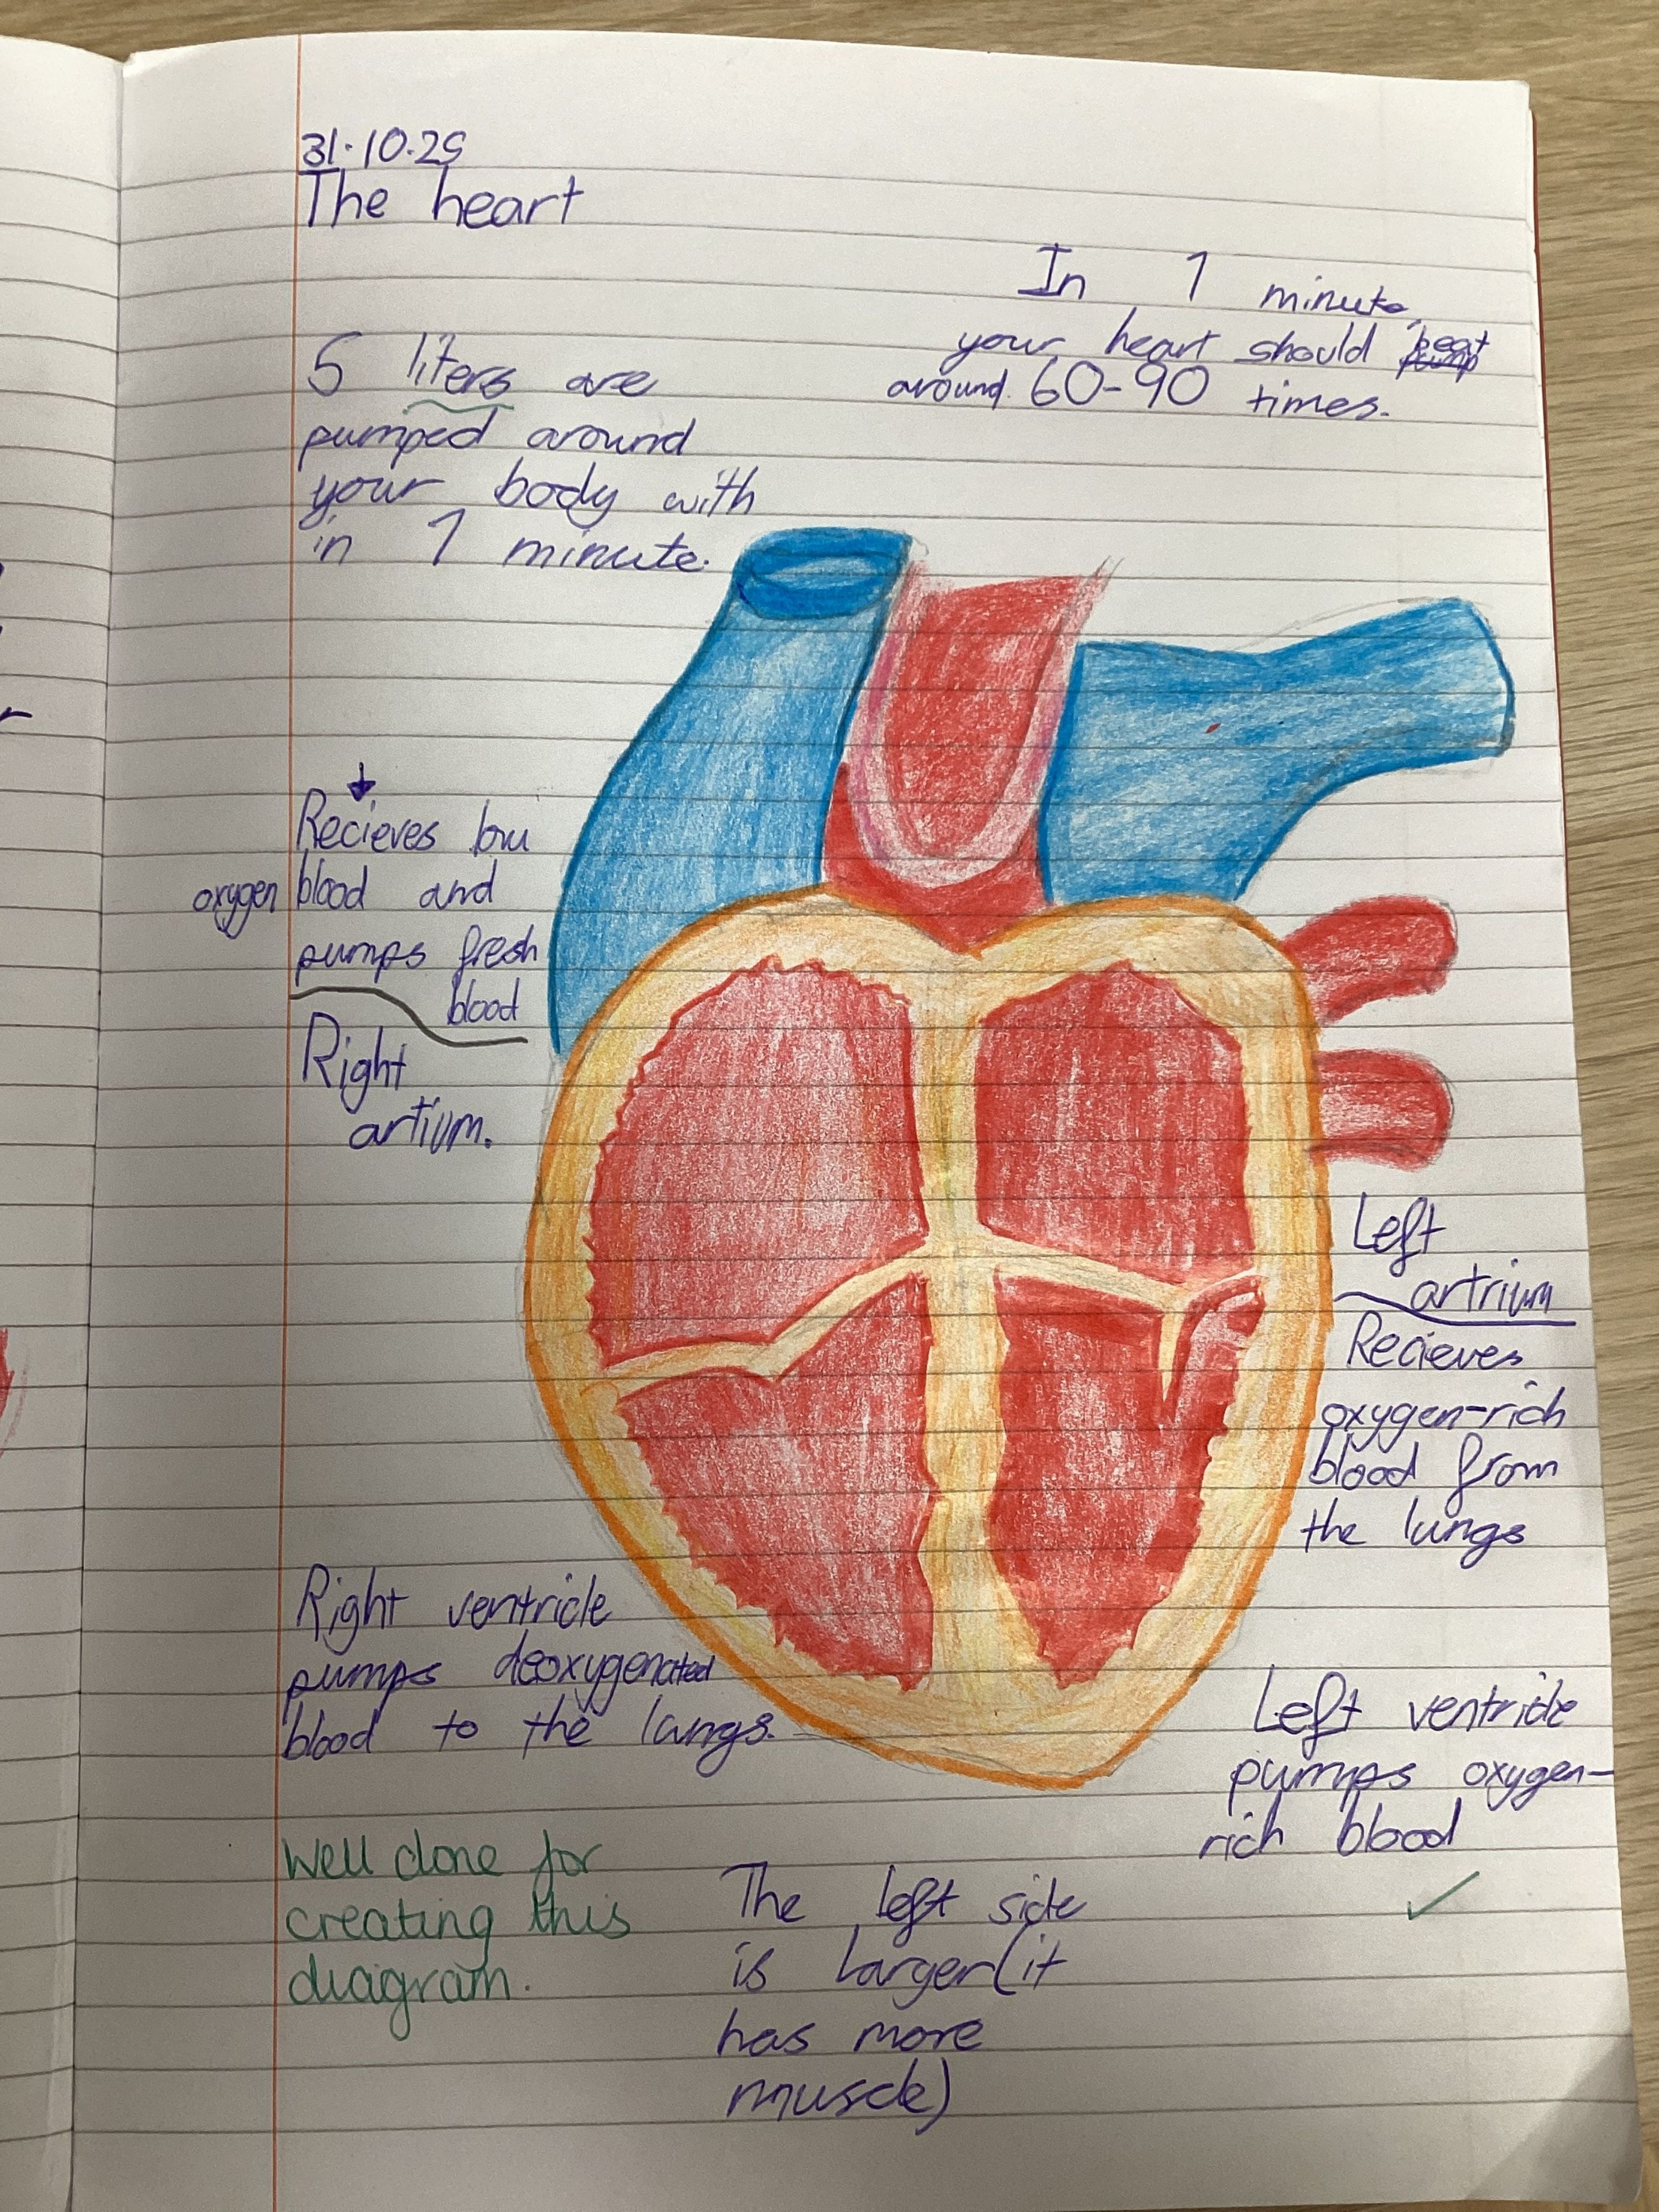 31.10.25
The heart
In 1 minute
your heart should beat
around 60-90 times.
5 liters are
pumped around
your body with
in 1 minute.
Recieves low
oxygen blood and
pumps fresh
blood
Right
artium.
Left
artrium
Recieves
oxygen-rich
blood from
the lungs
Right ventricle
pumps deoxygenated
blood to the lungs.
Left ventricle
pumps oxygen-
rich blood
Well done for
creating this
diagram.
The left side
is larger (it
has more
muscle)